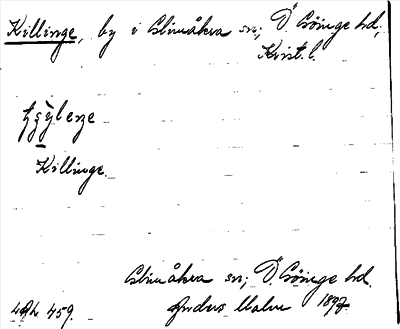 Killinge, by i Glimåkra sn; Ö. Göinge hd,
Krist. l.
Killinge.
Glimåkra sn; Ö. Göinge hd.
459. Anders Malm 1897